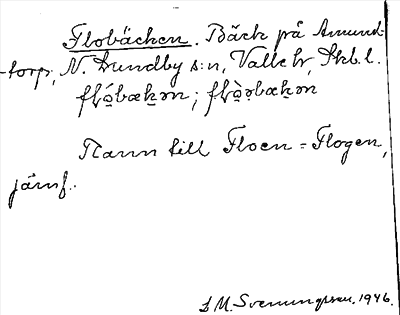 Flobäcken. Bäck på Amund-
torp, N. Lundby s:n, Valle hr, Skb.l.
Namn till Floen = Flogen,
jämf.
S M. Svenungsson, 1946.